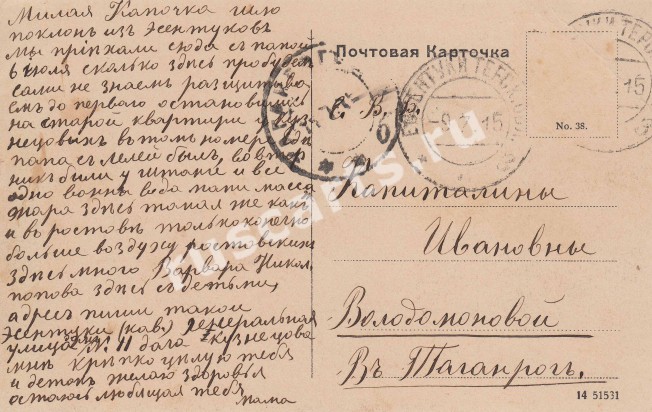 Милая Капочка шлю
поклон изъ Эсентуковъ
мы приѣхали сюда съ папой
6 июля сколько здѣсь пробудем
сами не знаем разщитыва
ем до первого остановились
на старой квартири у Куз
нецовыхъ въ томъ номере где
папа съ Лелей былъ, во втор
никъ были у
жара здѣсь такая же какъ
и въ ростовѣ только конечно
больше воздуху ростовских
здѣсь много Варвара Никол.
попова здѣсь съ детьми,
адресъ пиши такой
Эсентуки (кав) Генеральная
улица домъ № 11 дача Кузнецова
крѣпко цилую тебя
и деток желаю здоровья
остаюсь любящая тебя
мама
Почтовая Карточка
No. 38.
Е. В. Б.
Капиталины
Ивановны
Володомоновой
Въ Таганрогъ.
14 51531
ЕССЕНТУКИ ТЕРСК.
15
ruscarts.ru